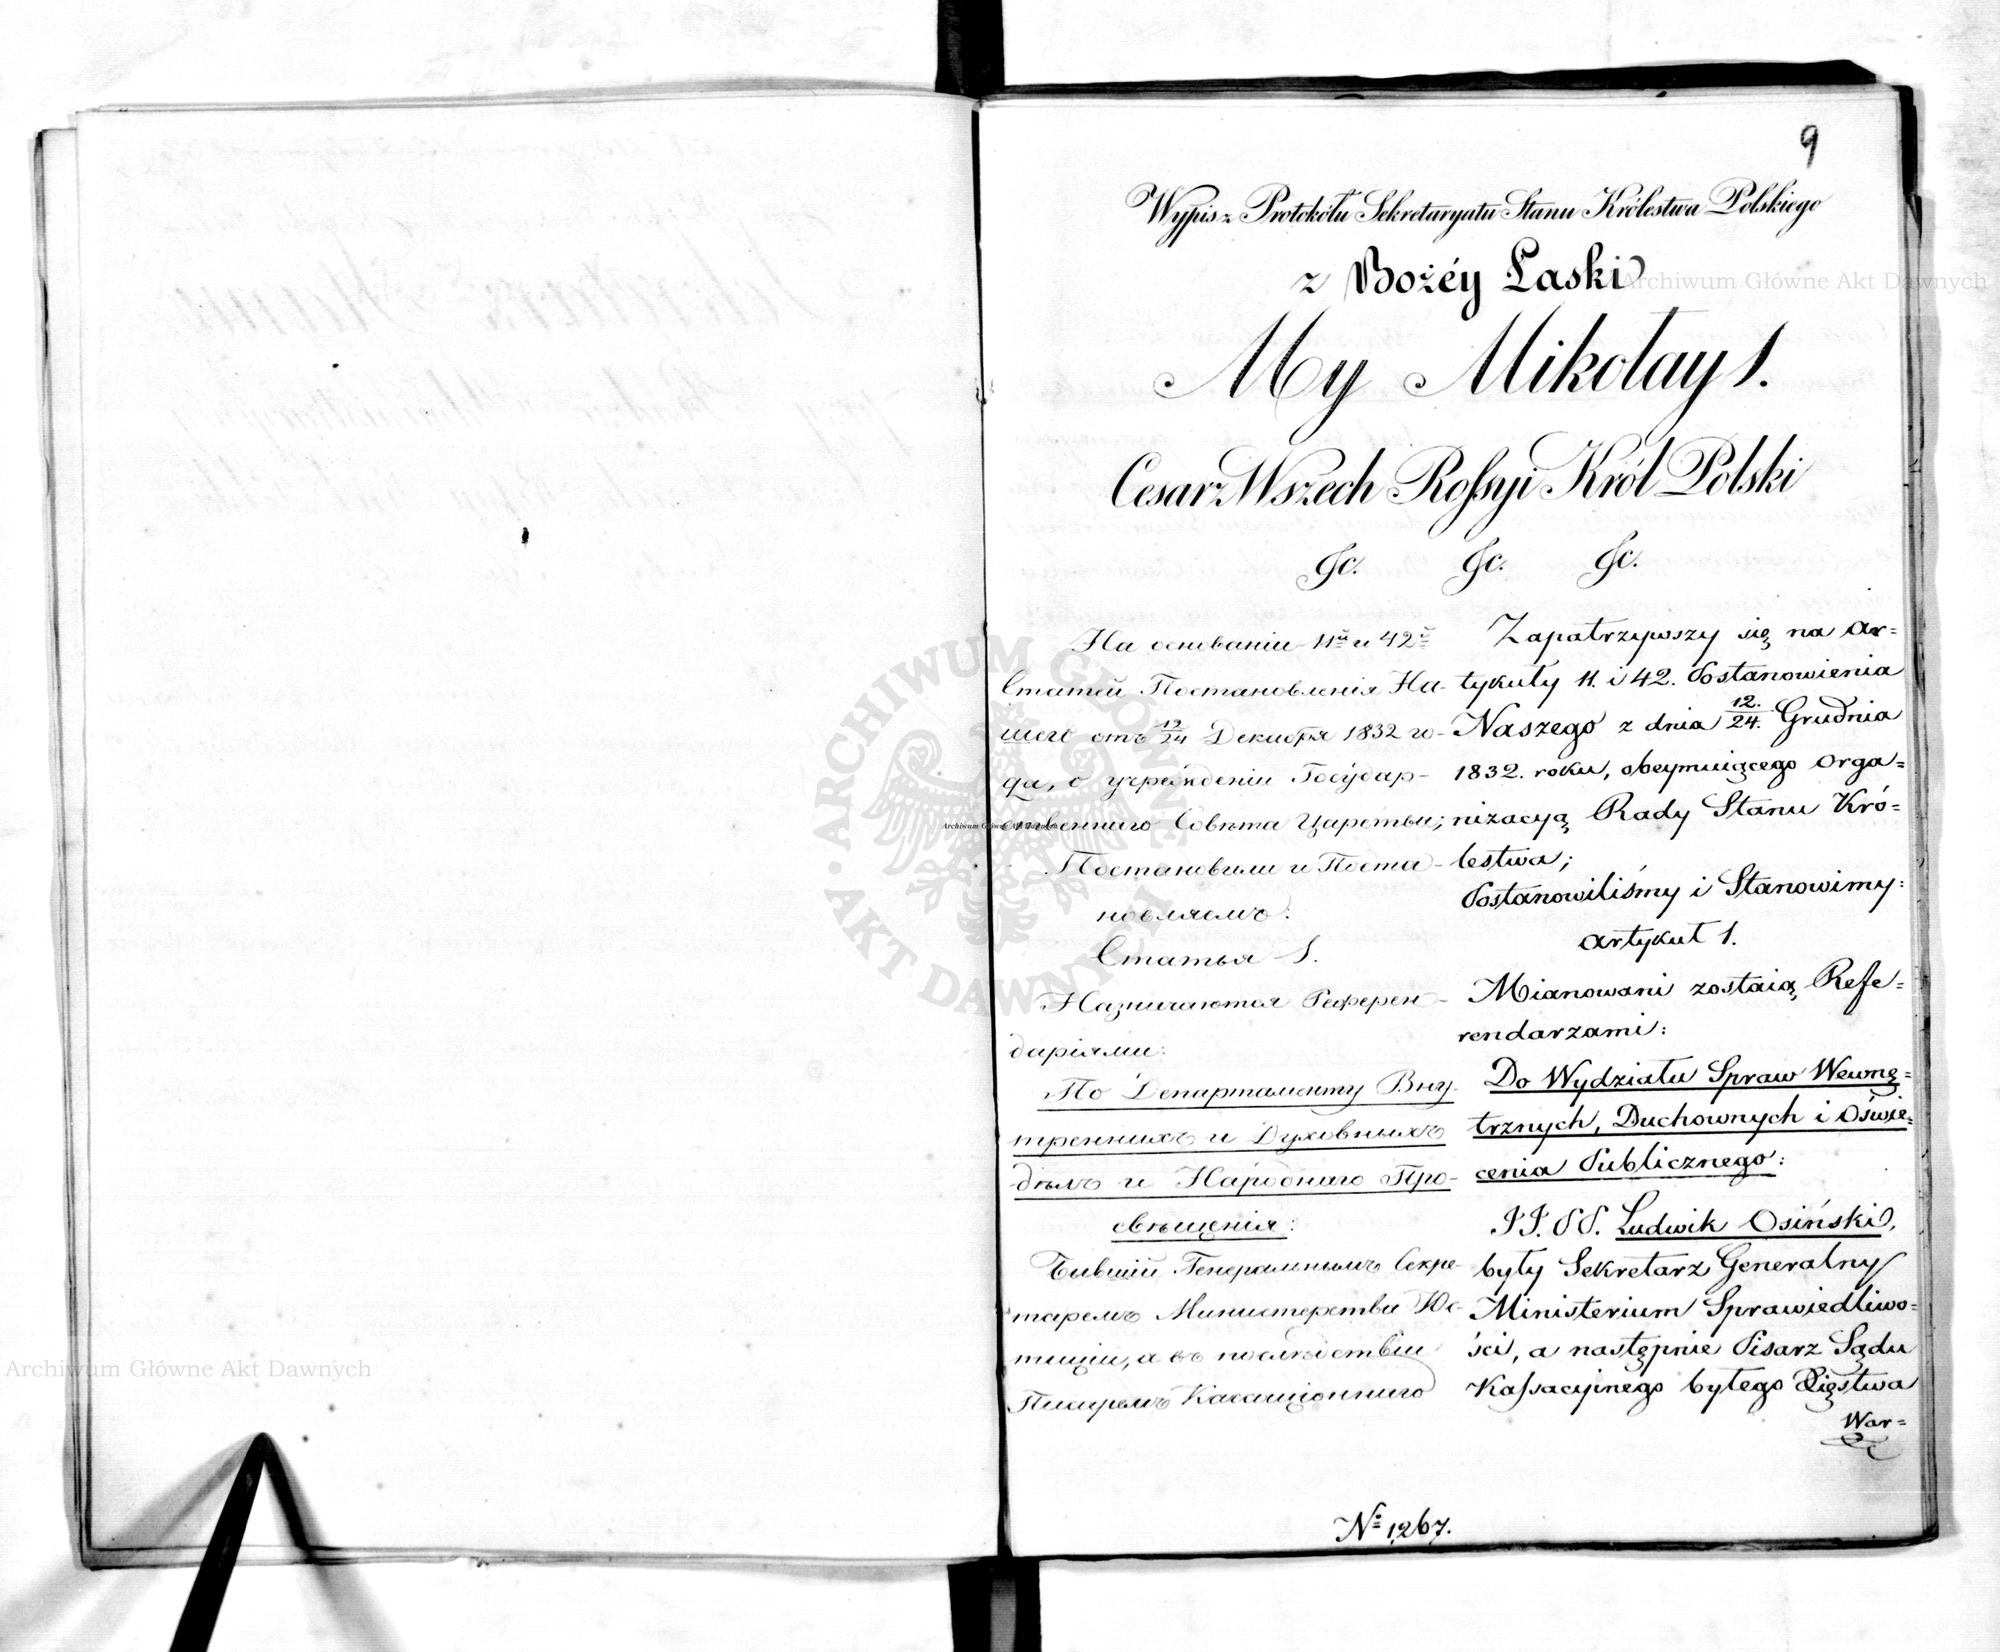 9
Wypis z Protokółu Sekretaryatu Stanu Królestwa Polskiego
z Bożéy Łaski
My Mikołay I.
Cesarz Wszech Rossyi Król Polski
&c. &c. &c.
На основаніи 11й и 42й
Статей Постановленія На-
шего отъ 12/24 Декабря 1832 го-
да, о учрежденіи Государ-
ственнаго Совѣта Царства;
Постановили и Поста-
новляемъ:
Статья I.
Назначаются Референ-
даріями:
По Департаменту Вну-
треннихъ и Духовныхъ
дѣлъ и Народнаго Про-
свѣщенія:
Бывшій Генеральнымъ Секре-
таремъ Министерства Юс-
тиціи, а въ послѣдствіи
Писаремъ Касаціоннаго
Zapatrzywszy się na Ar=
tykuły 11. i 42. Postanowienia
Naszego z dnia 12./24. Grudnia
1832. roku, obeymuiącego Orga=
nizacyą Rady Stanu Kró=
lestwa;
Postanowiliśmy i Stanowimy:
Artykuł I.
Mianowani zostaią Refe=
rendarzami:
Do Wydziału Spraw Wewnę=
trznych, Duchownych i Oświe=
cenia Publicznego:
JJ. PP. Ludwik Osiński,
były Sekretarz Generalny
Ministerium Sprawiedliwo=
ści, a następnie Pisarz Sądu
Kassacyinego byłego Xięstwa
War=
№ 1267.
Archiwum Główne Akt Dawnych
Archiwum Główne Akt Dawnych
Archiwum Główne Akt Dawnych
ARCHIWUM GŁÓWNE AKT DAWNYCH